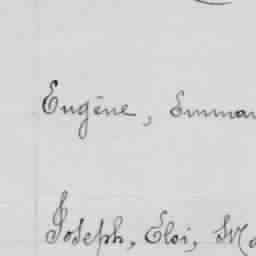 Eugène, Emman
Joseph, Eloi, Ma